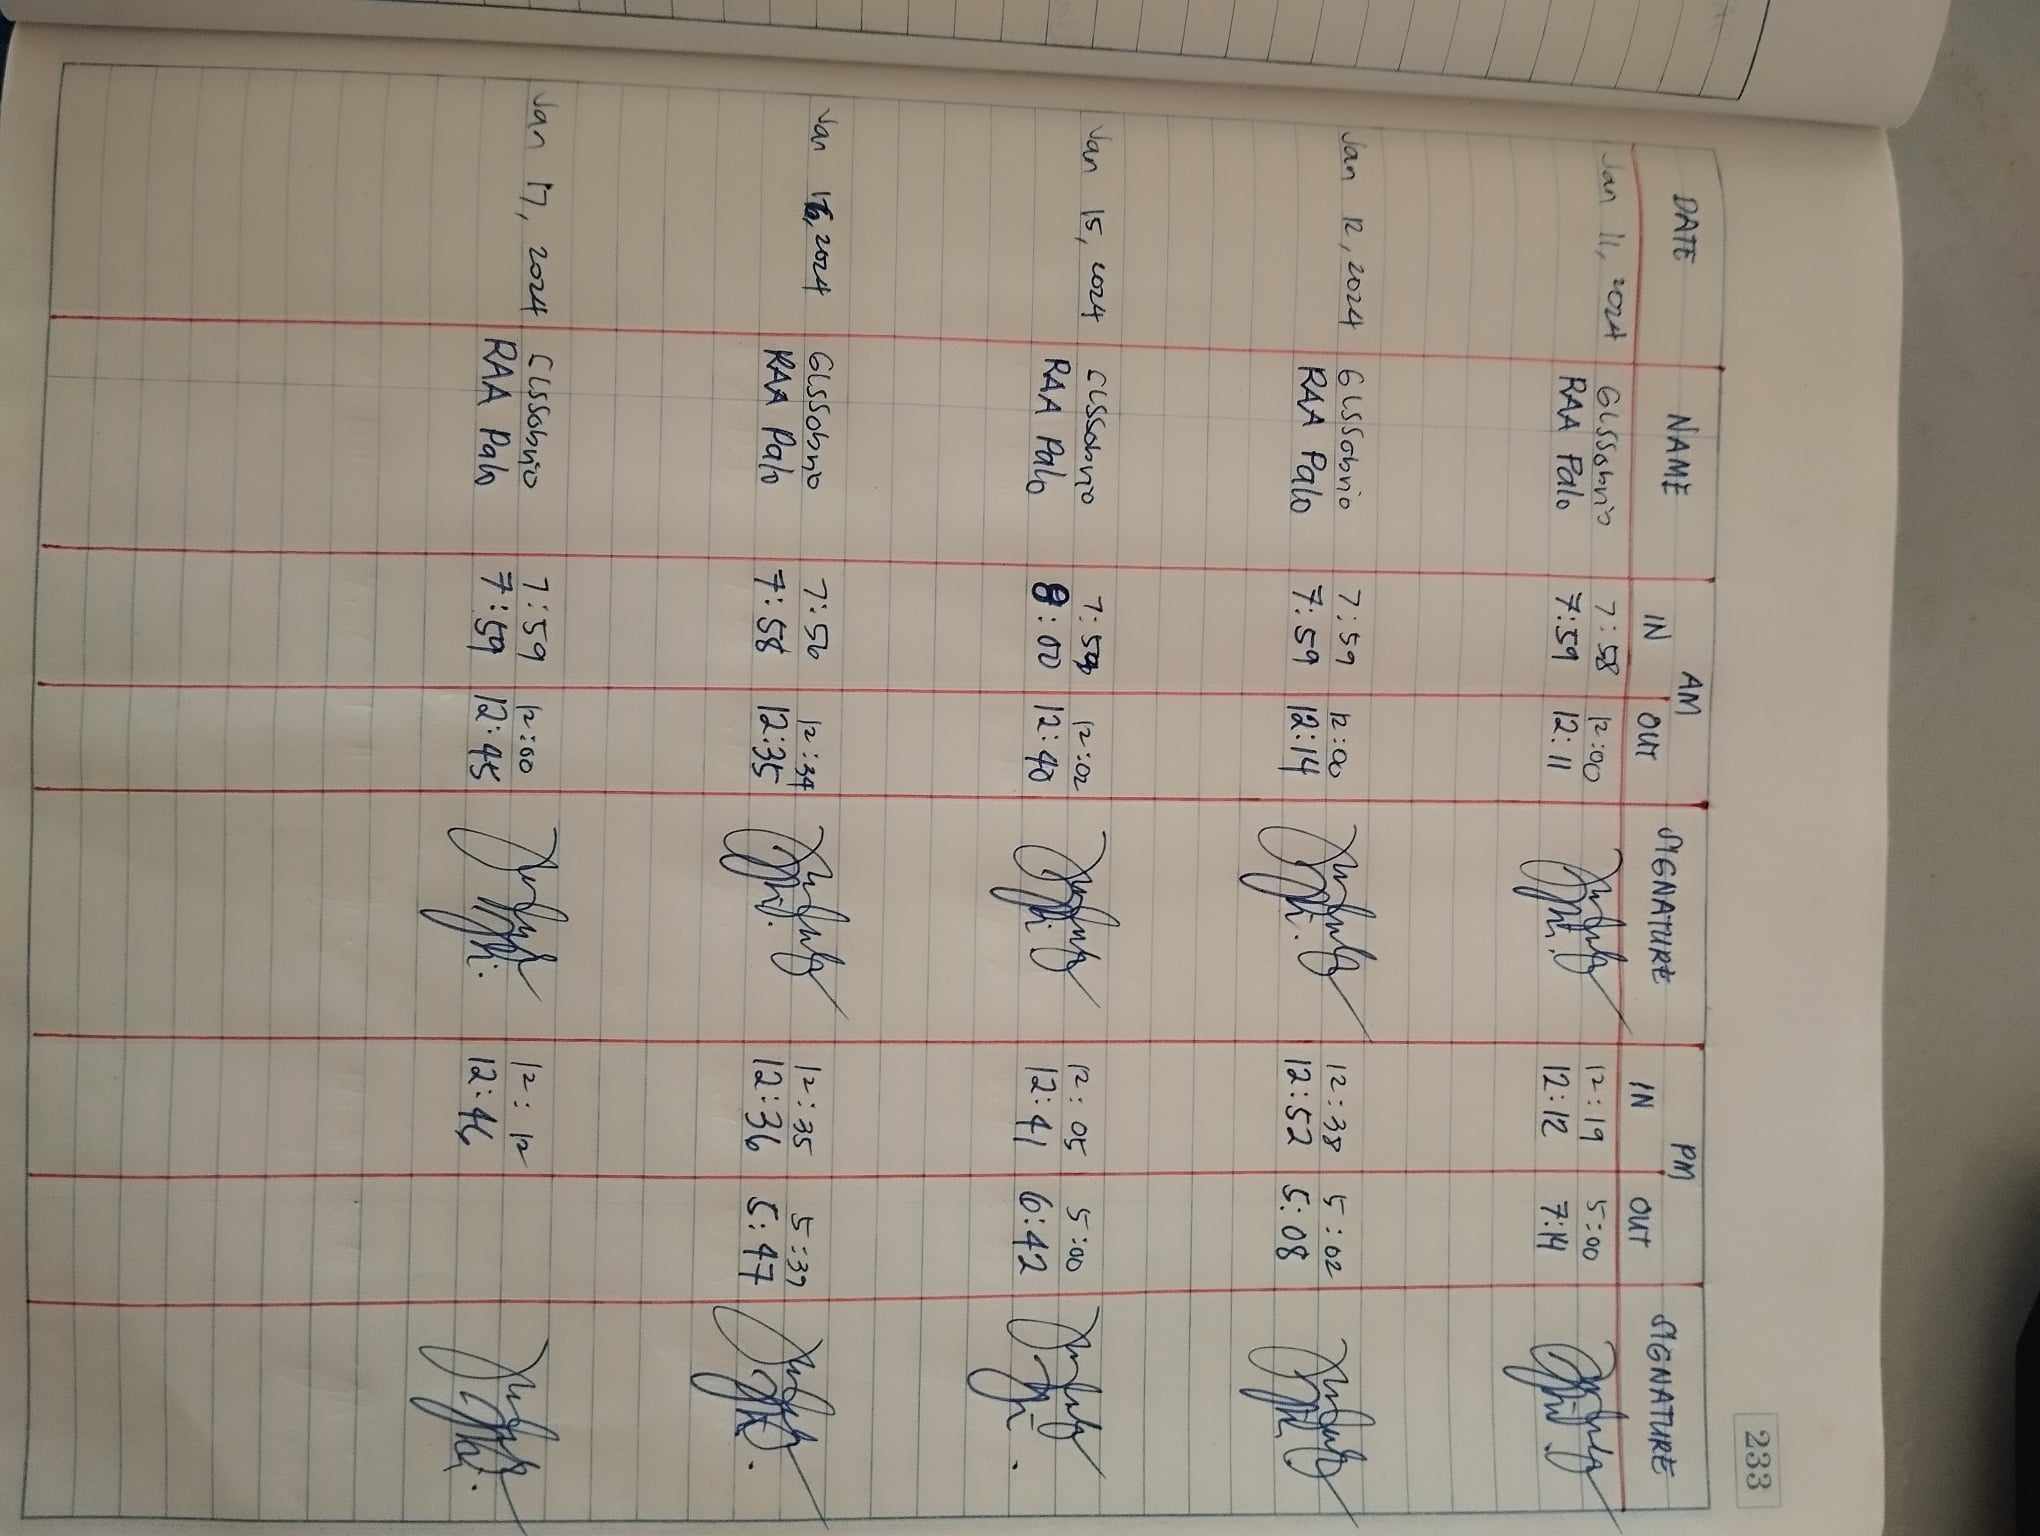 233
DATE NAME AM SIGNATURE PM SIGNATURE
IN OUT IN OUT
Jan 11, 2024 GLSSobrio 7:58 12:00 12:19 5:00
RAA Palo 7:59 12:11 12:12 7:14
Jan 12, 2024 GLSSobrio 7:59 12:00 12:38 5:02
RAA Palo 7:59 12:14 12:52 5:08
Jan 15, 2024 GLSSobrio 12:02 12:05 5:00
RAA Palo 8:00 12:40 12:41 6:42
Jan 16, 2024 GLSSobrio 7:56 12:34 12:35 5:39
RAA Palo 7:58 12:35 12:36 5:47
Jan 17, 2024 GLSSobrio 7:59 12:00 12:12
RAA Palo 7:59 12:45 12:46